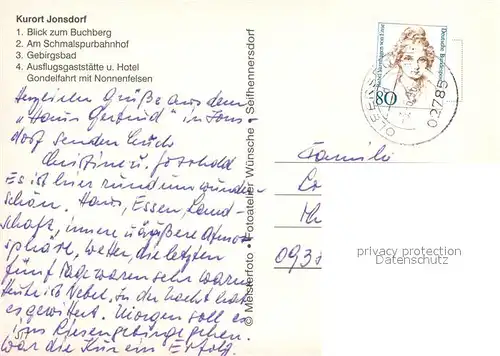 Kurort Jonsdorf
1. Blick zum Buchberg
2. Am Schmalspurbahnhof
3. Gebirgsbad
4. Ausflugsgaststätte u. Hotel
Gondelfahrt mit Nonnenfelsen
Herzlichen Grüße aus dem
"Haus Gertrud" in Jons-
dorf senden Euch
Christine u. Gotthold
Es ist hier rundum wunder-
schön. Haus, Essen, Land-
schaft, innere u. äußere Atmos-
phäre, Wetter, die letzten
fünf Tage waren sehr warm
Heute ist Nebel, in der Nacht hat
es gewittert. Morgen soll es
ins Riesengebirge gehen.
war die Kur ein Erfolg.
© Meisterfoto - Fotoatelier Wünsche - Seifhennersdorf
Deutsche Bundespost
80
02785
Familie
093
privacy protection
Datenschutz